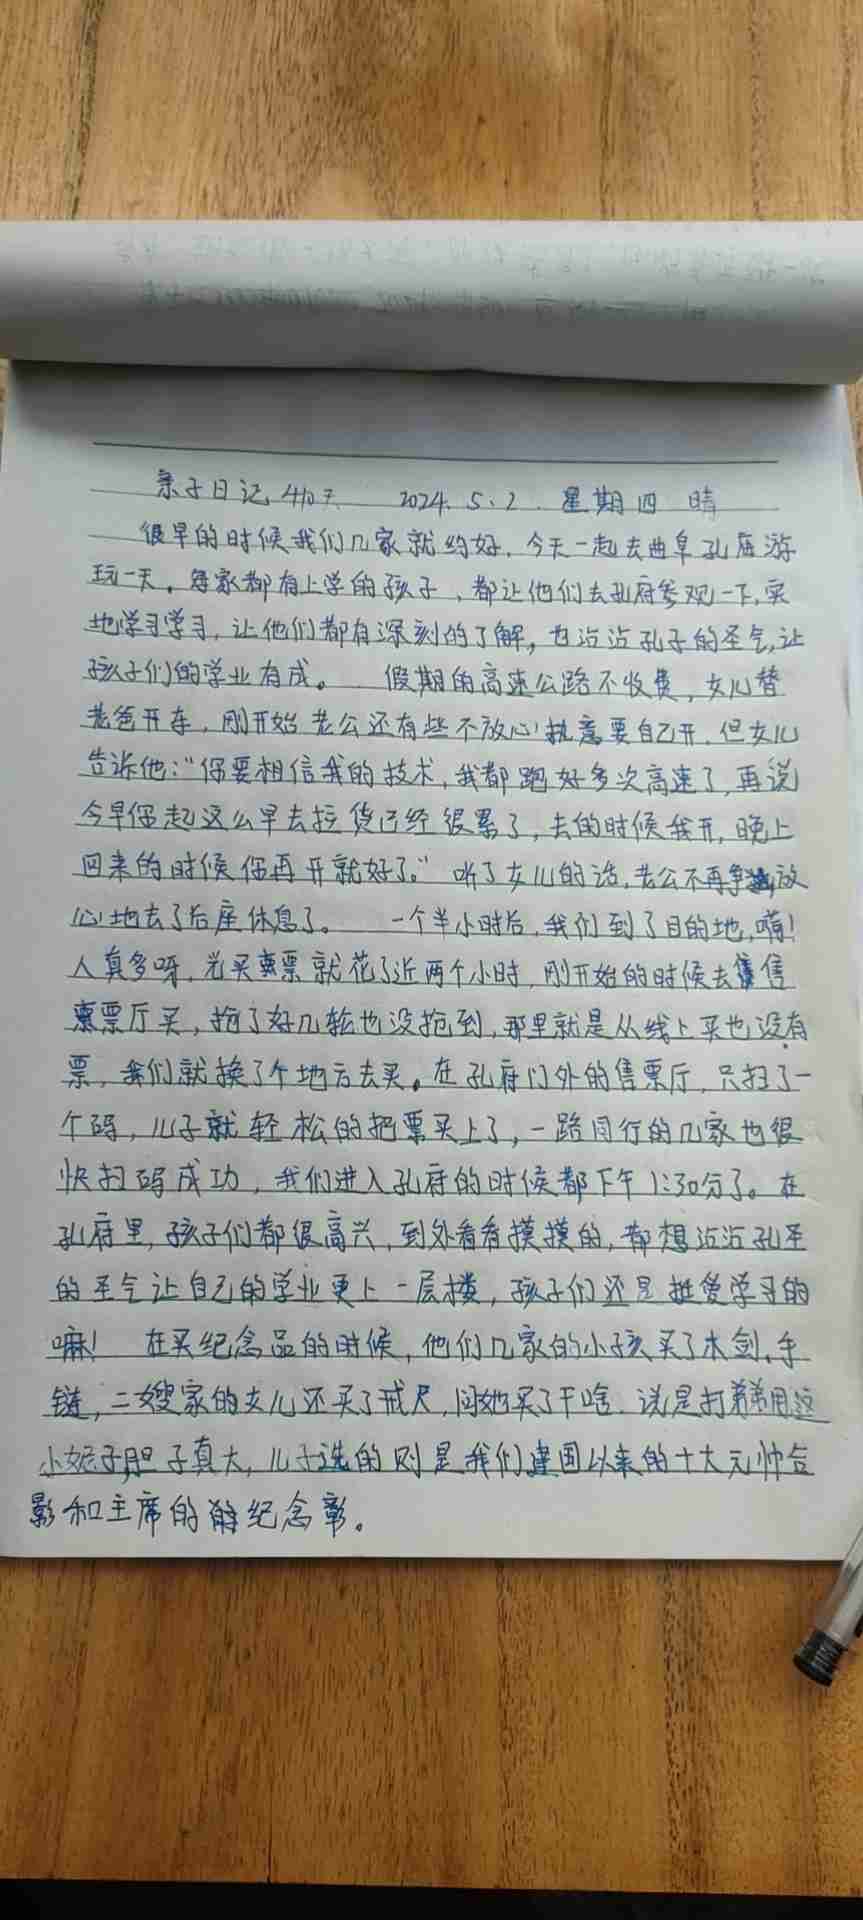 亲子日记 4107. 2024.5.2. 星期四 晴
很早的时候我们几家就约好，今天一起去曲阜孔府游
玩一天。每家都有上学的孩子，都让他们去孔府参观一下，实
地学习学习，让他们都有深刻的了解，也沾沾孔子的圣气，让
孩子们的学业有成。 假期的高速公路不收费，女儿替
老爸开车，刚开始老公还有些不放心执意要自己开，但女儿
告诉他：“你要相信我的技术，我都跑好多次高速了，再说
今早你起这么早去拉货已经很累了，去的时候我开，晚上
回来的时候你再开就好了。”听了女儿的话，老公不再争放
心地去了后座休息了。 一个半小时后，我们到了目的地，嗬！
人真多呀，光买票就花了近两个小时，刚开始的时候去售
票厅买，抢了好几轮也没抢到，那里就是从线上买也没有
票，我们就换了个地方去买。在孔府门外的售票厅，只扫了一
个码，儿子就轻松的把票买上了，一路同行的几家也很
快扫码成功，我们进入孔府的时候都下午1:30分了。在
孔府里，孩子们都很高兴，到外看看摸摸的，都想沾沾孔圣
的圣气让自己的学业更上一层楼，孩子们还是挺爱学习的
嘛！ 在买纪念品的时候，他们几家的小孩买了木剑、手
链，二嫂家的女儿还买了戒尺，问她买了干啥，说是打弟弟用这
小妮子胆子真大，儿子选的则是我们建国以来的十大元帅合
影和主席的纪念章。